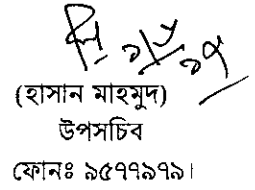 (হাসান মাহমুদ)
উপসচিব
ফোনঃ ৯৫৭৭৯৭৯।